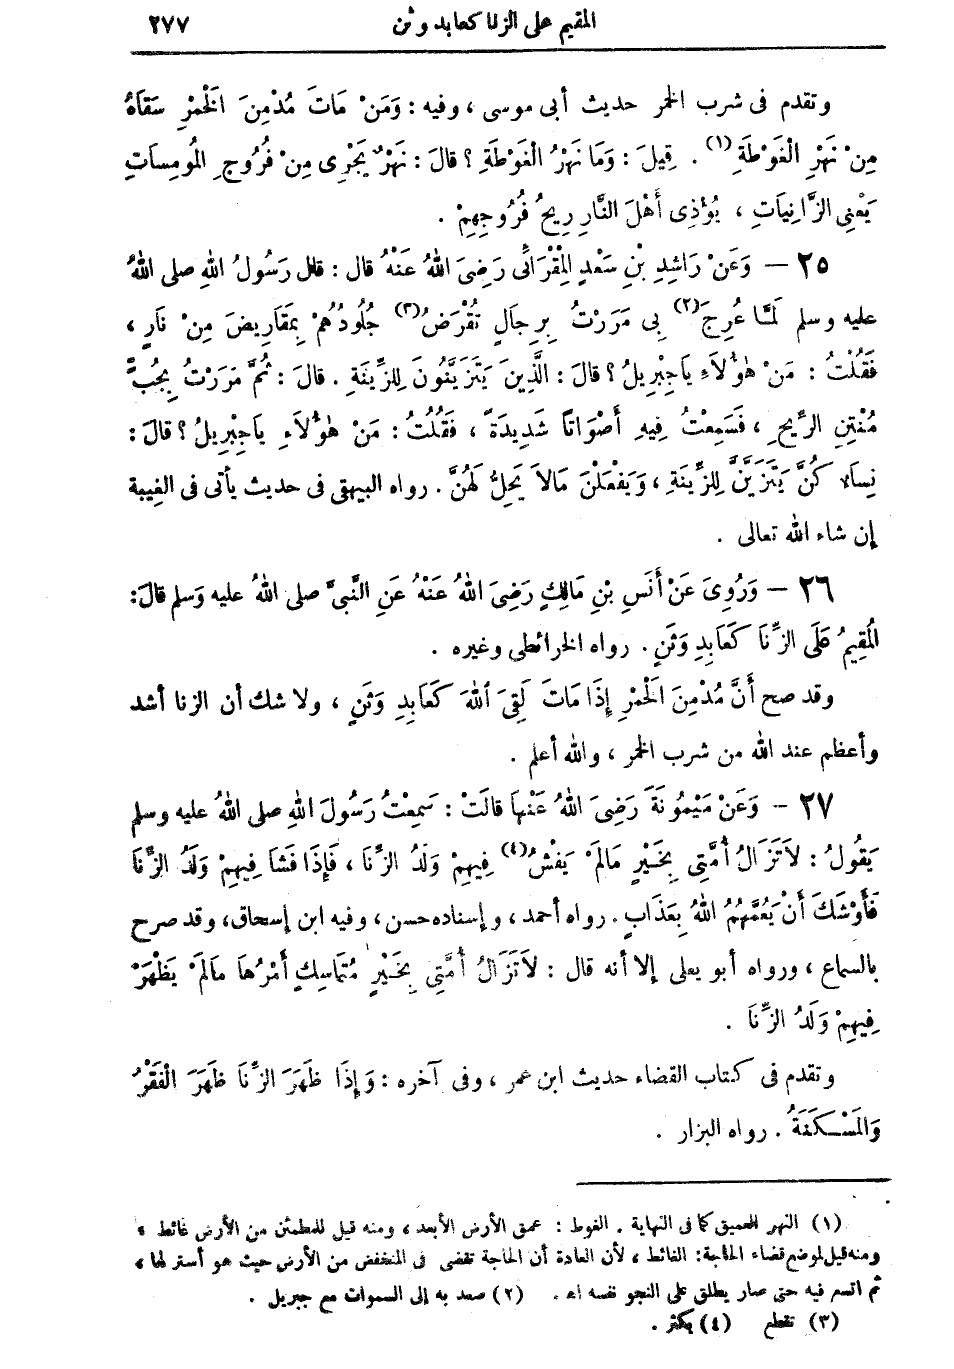 المقيم على الزنا كعابد وثن ٢٧٧
وتقدم فى شرب الخمر حديث أبى موسى ، وفيه : وَمَنْ مَاتَ مُدْمِنَ الْخَمْرِ سَقَاهُ
مِنْ نَهْرِ الْغَوْطَةِ (١) . قِيلَ : وَمَا نَهْرُ الْغَوْطَةِ ؟ قالَ : نَهْرٌ يَجْرِى مِنْ فُرُوجِ الْمُومِسَاتِ
يَعْنِى الزَّانِيَاتِ ، يُؤْذِى أَهْلَ النَّارِ رِيحُ فُرُوجِهِمْ .
٢٥ — وَعَنْ رَاشِدِ بْنِ سَعْدٍ الْمَقْرَائِى رَضِىَ اللهُ عَنْهُ قال : قال رَسُولُ اللهِ صلى اللهُ
عليه وسلم لَمَّا عُرِجَ (٢) بِى مَرَرْتُ بِرِجَالٍ تُقْرَضُ (٣) جُلُودُهُمْ بِمَقَارِيضَ مِنْ نَارٍ ،
فَقُلْتُ : مَنْ هٰؤُلاَءِ يَاجِبْرِيلُ ؟ قالَ : الَّذِينَ يَتَزَيَّنُونَ لِلزِّينَةِ . قالَ : ثُمَّ مَرَرْتُ بِجُبٍّ
مُنْتِنِ الرِّيحِ ، فَسَمِعْتُ فِيهِ أَصْوَاتًا شَدِيدَةً ، فَقُلْتُ : مَنْ هٰؤُلاَءِ يَاجِبْرِيلُ ؟ قالَ :
نِسَاءٌ كُنَّ يَتَزَيَّنَّ لِلزِّينَةِ ، وَيَفْعَلْنَ مَالاَ يَحِلُّ لَهُنَّ . رواه البيهقى فى حديث يأتى فى الغيبة
إن شاء الله تعالى .
٢٦ — وَرُوِىَ عَنْ أَنَسِ بْنِ مَالِكٍ رَضِىَ اللهُ عَنْهُ عَنِ النَّبِىِّ صلى اللهُ عليه وَسلم قالَ :
الْمُقِيمُ عَلَى الزِّنَا كَعَابِدِ وَثَنٍ . رواه الخرائطى وغيره .
وقد صح أَنَّ مُدْمِنَ الْخَمْرِ إِذَا مَاتَ لَقِىَ اللهَ كَعَابِدِ وَثَنٍ ، ولا شك أن الزنا أشد
وأعظم عند الله من شرب الخمر ، والله أعلم .
٢٧ — وَعَنْ مَيْمُونَةَ رَضِىَ اللهُ عَنْهَا قالَتْ : سَمِعْتُ رَسُولَ اللهِ صلى اللهُ عليه وسلم
يَقُولُ : لاَتَزَالُ أُمَّتِى بِخَيْرٍ مَالَمْ يَفْشُ (٤) فِيهِمْ وَلَدُ الزِّنَا ، فَإِذَا فَشَا فِيهِمْ وَلَدُ الزِّنَا
فَأَوْشَكَ أَنْ يَعُمَّهُمُ اللهُ بِعَذَابٍ . رواه أحمد ، وإسناده حسن ، وفيه ابن إسحاق ، وقد صرح
بالسماع ، ورواه أبو يعلى إلا أنه قال : لاَتَزَالُ أُمَّتِى بِخَيْرٍ مُتَمَاسِكٍ أَمْرُهَا مَالَمْ يَظْهَرْ
فِيهِمْ وَلَدُ الزِّنَا .
وتقدم فى كتاب القضاء حديث ابن عمر ، وفى آخره : وَإِذَا ظَهَرَ الزِّنَا ظَهَرَ الْفَقْرُ
وَالْمَسْكَنَةُ . رواه البزار .
(١) النهر العميق كما فى النهاية . الغوط : عمق الأرض الأبعد ، ومنه قيل للمطمئن من الأرض غائط ،
ومنه قيل لموضع قضاء الحاجة : الغائط ، لأن العادة أن الحاجة تقضى فى المنخفض من الأرض حيث هو أستر لها ،
ثم اتسع فيه حتى صار يطلق على النجو نفسه اه . (٢) صعد به إلى السموات مع جبريل .
(٣) تقطع (٤) يكثر .